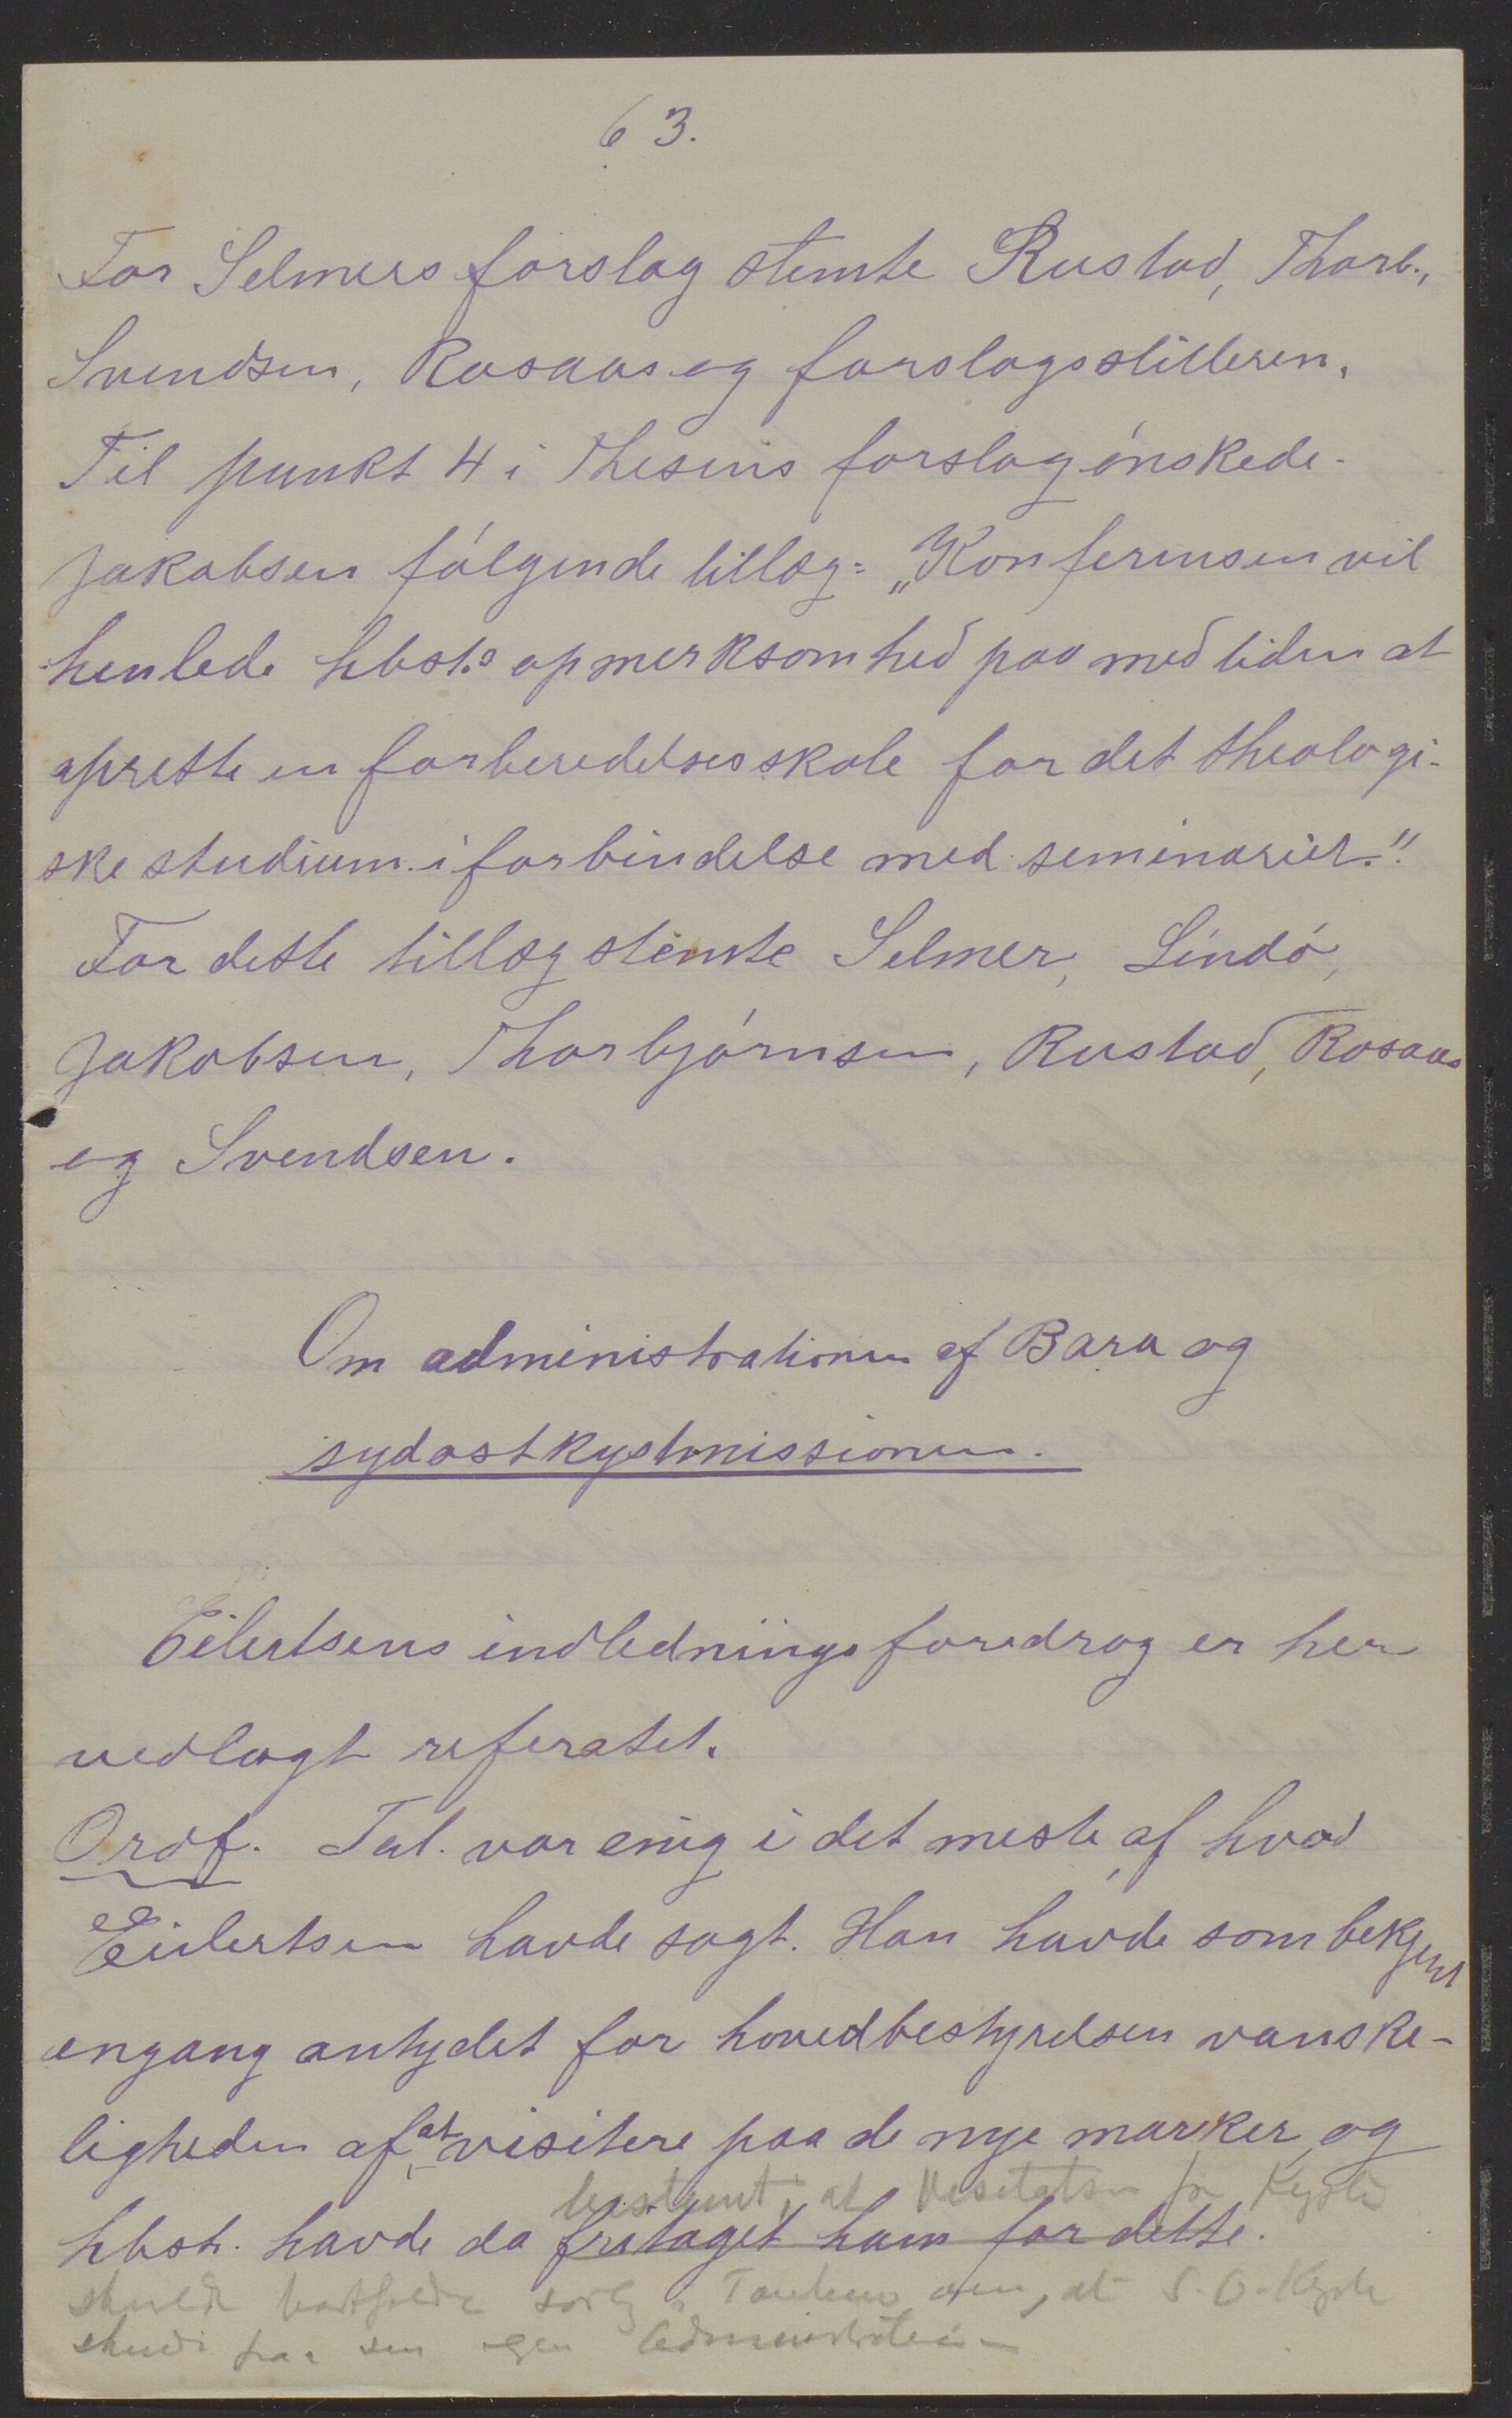 63.
For Selmers forslag stemte Rustad, Thorb.,
Svendsen, Rosaas og forslagsstilleren.
Til punkt 4 i Thesens forslag ónskede
Jakobsen fólgende tillæg: „Konferensen vil
henlede hbst.s opmerksomhed paa med tiden at
oprette en forberedelsesskole for det theologi-
ske studium i forbindelse med seminariet."
For dette tillæg stemte Selmer, Lindó,
Jakobsen, Thorbjórnsen, Rustad, Rosaas
og Svendsen.
Om administrationen af Bara og
sydostkystmissionen.
Eilertsens indledningsforedrag er her
vedlagt referatet.
Ordf. Tal. var enig i det meste af hvad
Eilertsen havde sagt. Han havde som bekjent
engang antydet for hovedbestyrelsen vanske-
ligheden af at visitere paa de nye marker og
bestemt, at Visitatsen fra Kysten
hbst. havde da fritaget ham for dette.
skulde bortfalde i Tanken om, at S. O. Kysten
skulde faa sin egen Administration